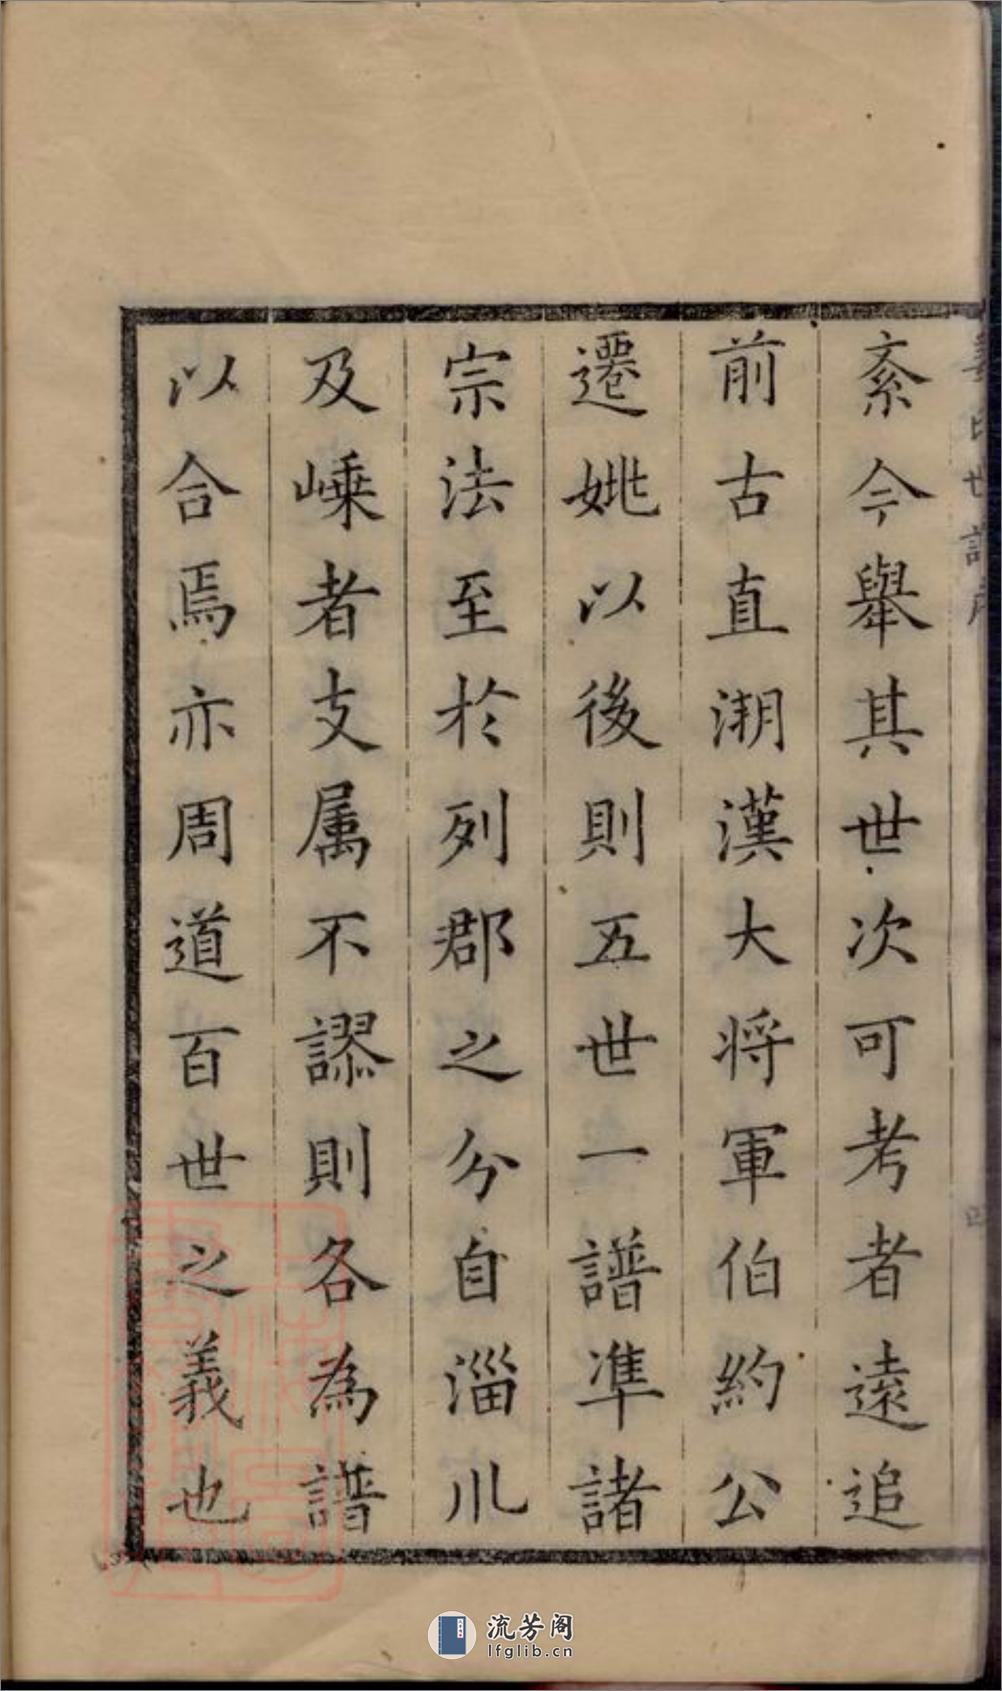 紊今舉其世次可考者遠追
前古直溯漢大將軍伯約公
遷姚以後則五世一譜準諸
宗法至於列郡之分自淄川
及嵊者支属不謬則各為譜
以合焉亦周道百世之義也
姜氏世譜序
四
流芳阁
lfglib.cn